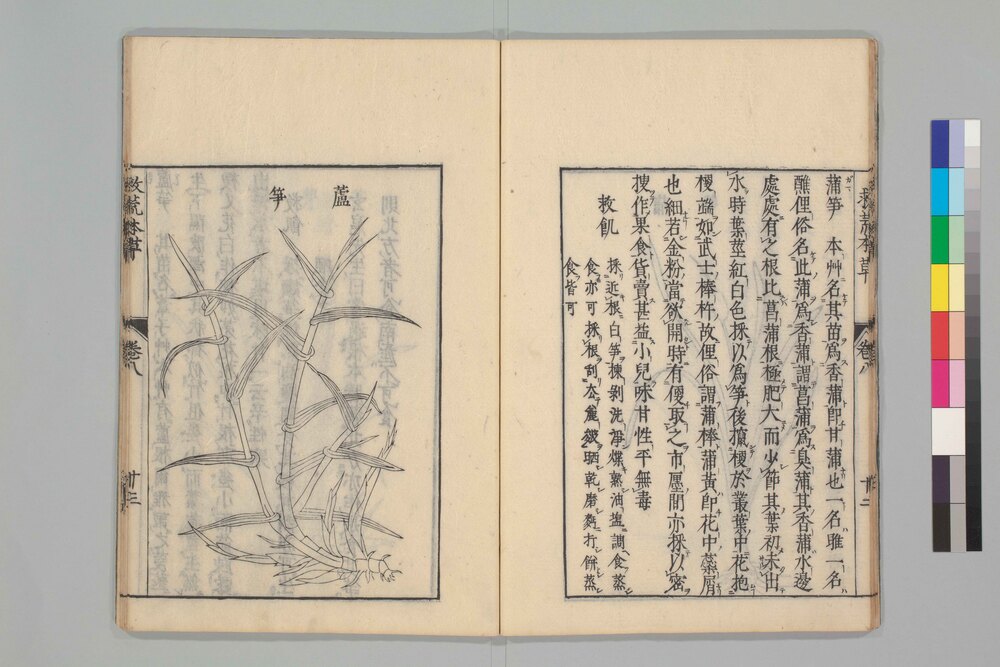 救荒本草
卷八
十二
蒲笋　本艸名其苗爲香蒲即甘蒲也一名睢一名
醮俚俗名此蒲爲香蒲謂菖蒲爲臭蒲其香蒲水邊
處處有之根比菖蒲根極肥大而少節其葉初未出
水時葉莖紅白色採以爲笋後攛梗於叢葉中花抱
梗端如武士棒杵故俚俗謂蒲棒蒲黃即花中蘂屑
也細若金粉當欲開時有便取之市廛間亦採以蜜
搜作果食貨賣甚益小兒味甘性平無毒
救飢
採近根白笋揀剝洗淨煠熟油鹽調食蒸
食亦可採根刮去麄皴晒乾磨麪打餅蒸
食皆可
蘆
笋
救荒本草
卷八
十三